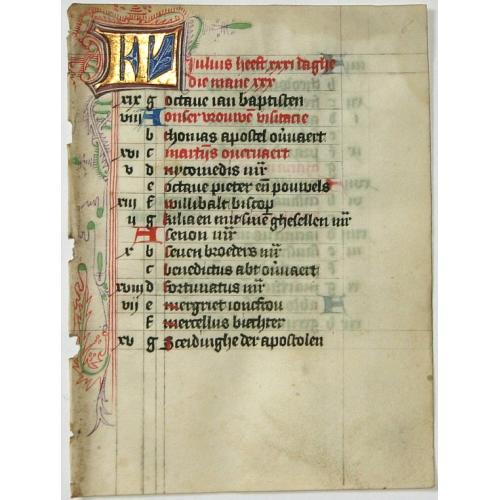 KL Iulius heeft xxxi daghe
die mane xxx
xix g octaue ian baptisten
viii A onser vrouwen visitacie
b thomas apostel ouuaert
xvi c martijns oueruaert
v d nycomedis mr
e octaue pieter en pouwels
xiii f willibalt biscop
ii g kiliaen mit sinen ghesellen mr
A senon mr
x b seuen broeders mr
c benedictus abt ouuaert
xviii d fortunatus mr
vii e mergriet ioncfrou
f mercellus biechter
xv g Sceidinghe der apostolen